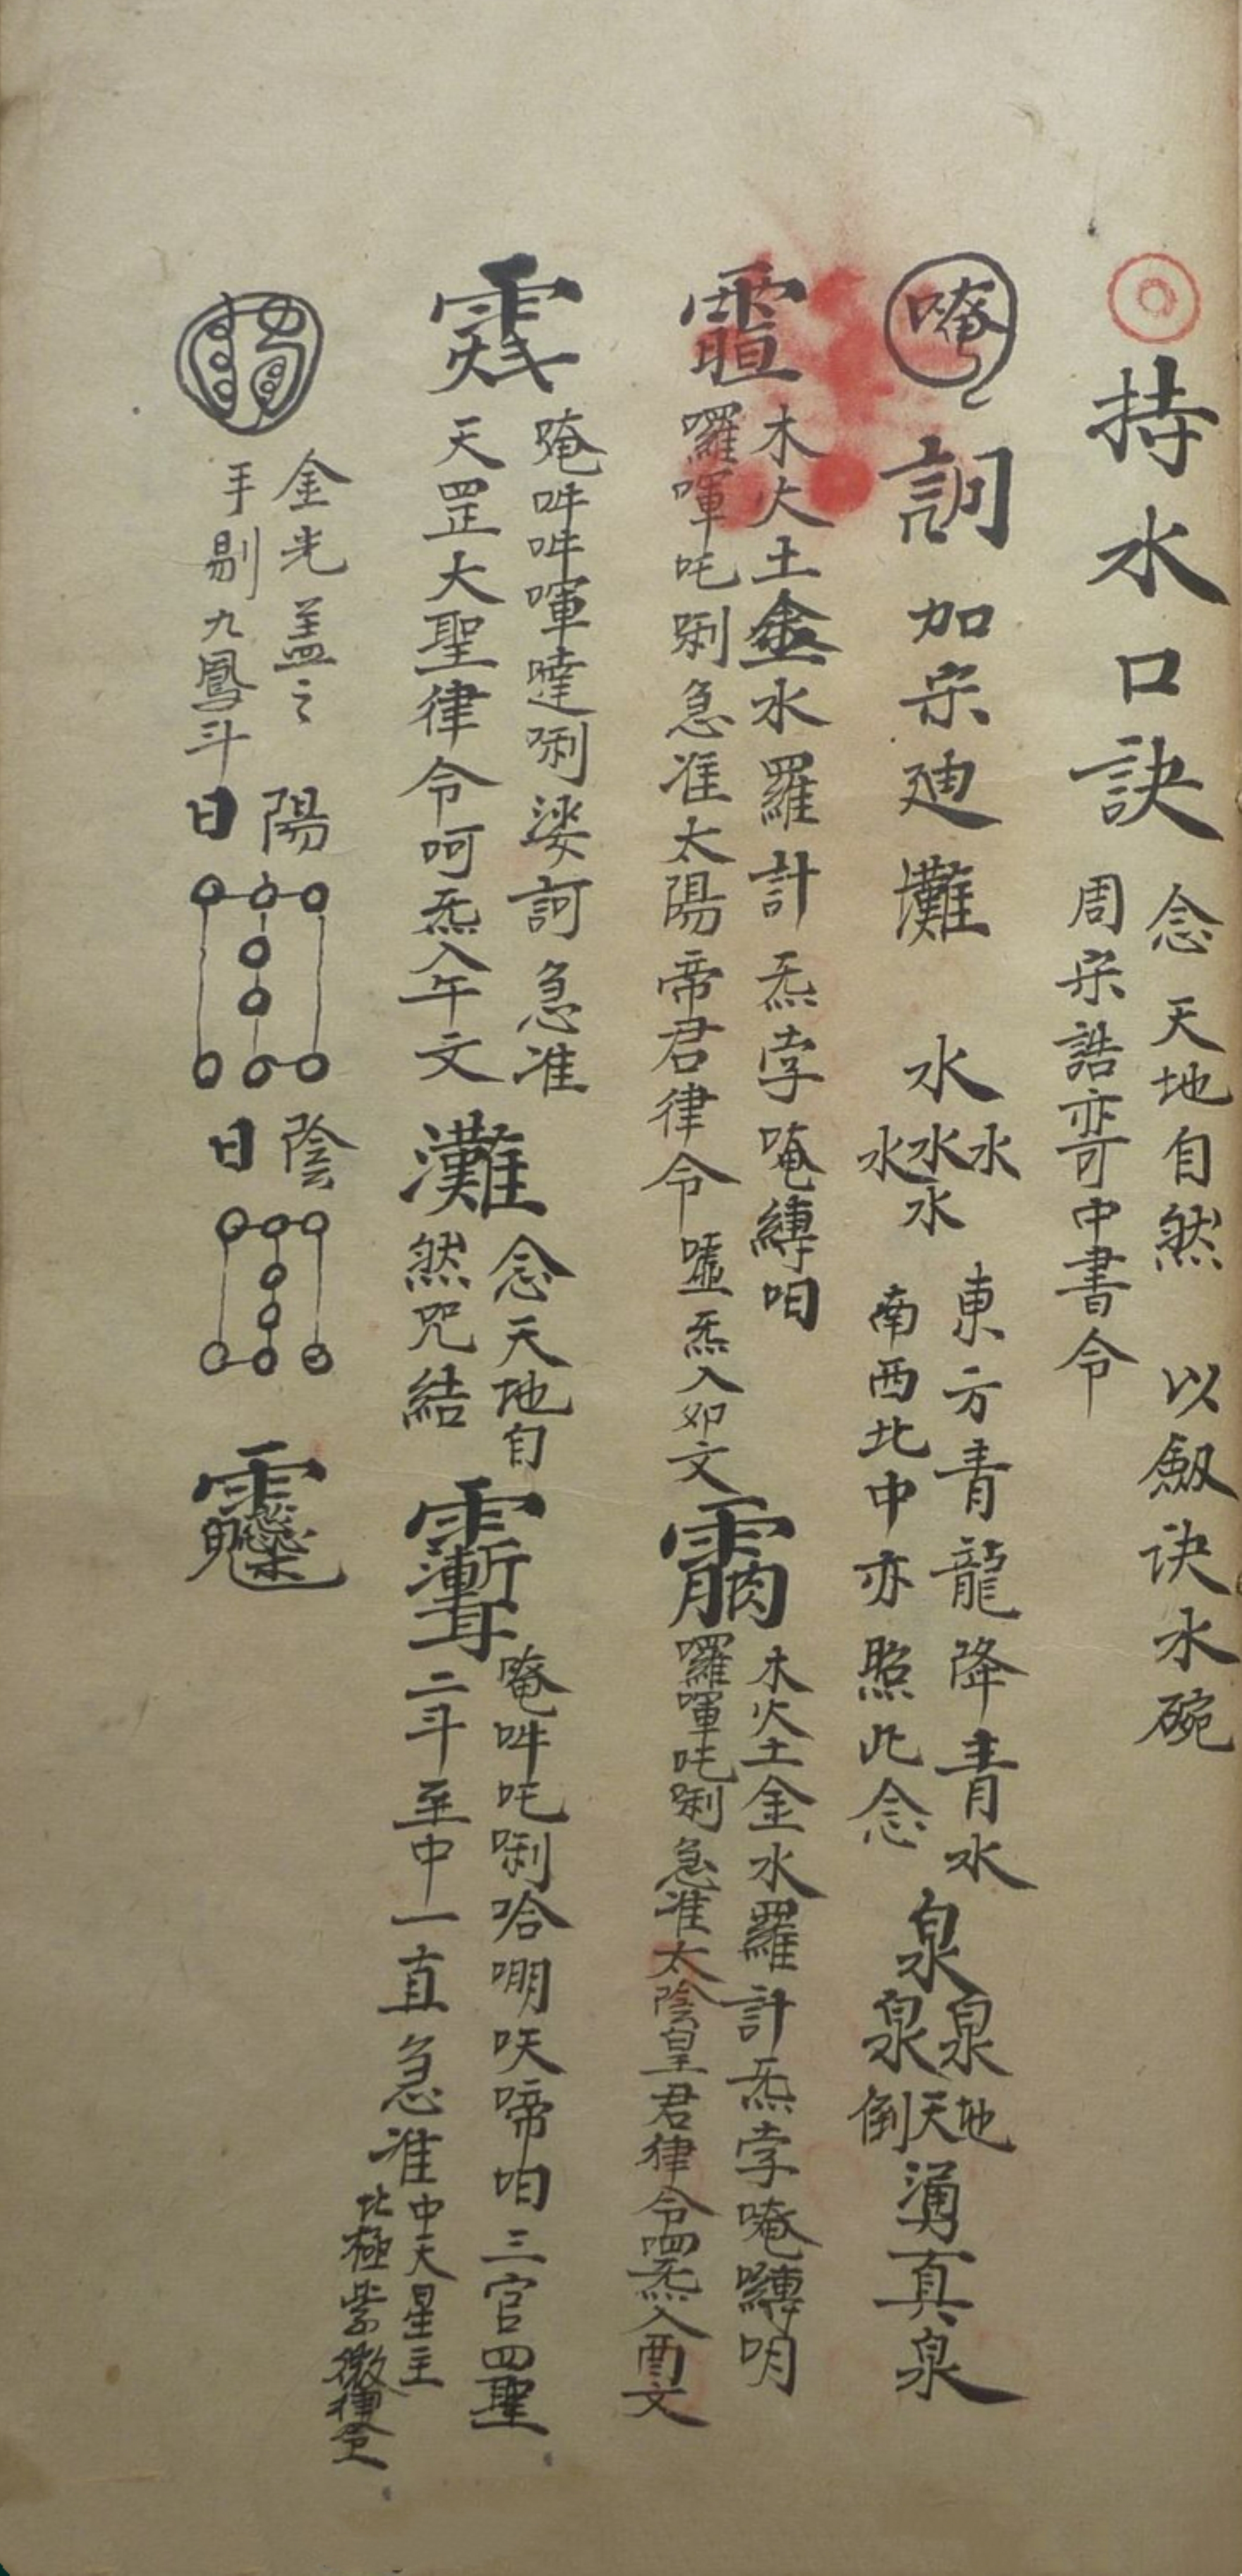 持水口訣
念天地自然 以劔诀水碗
周宋誥奇中書令
唵
訶加宋廸灘
水
水水水
水
東方青龍降青水
南西北中亦照此念
泉
泉泉
倒天地
湧真泉
木火土金水羅計炁孛唵縳呾
囉㖕吒唎急准太陽帝君律令嘘炁入卯文
木火土金水羅計炁孛唵囀明
囉㖕吒唎急准太陰皇君律令呬炁入酉文
唵吽吽㖕噠唎娑訶急准
天罡大聖律令呵炁入午文
灘
念天地自
然咒結
唵吽吒唎哈㘐呋啼呾三官四聖
二斗至中一直急准
中天星主
北極紫微律令
金光盖之陽
手剔九鳳斗日
陰
日